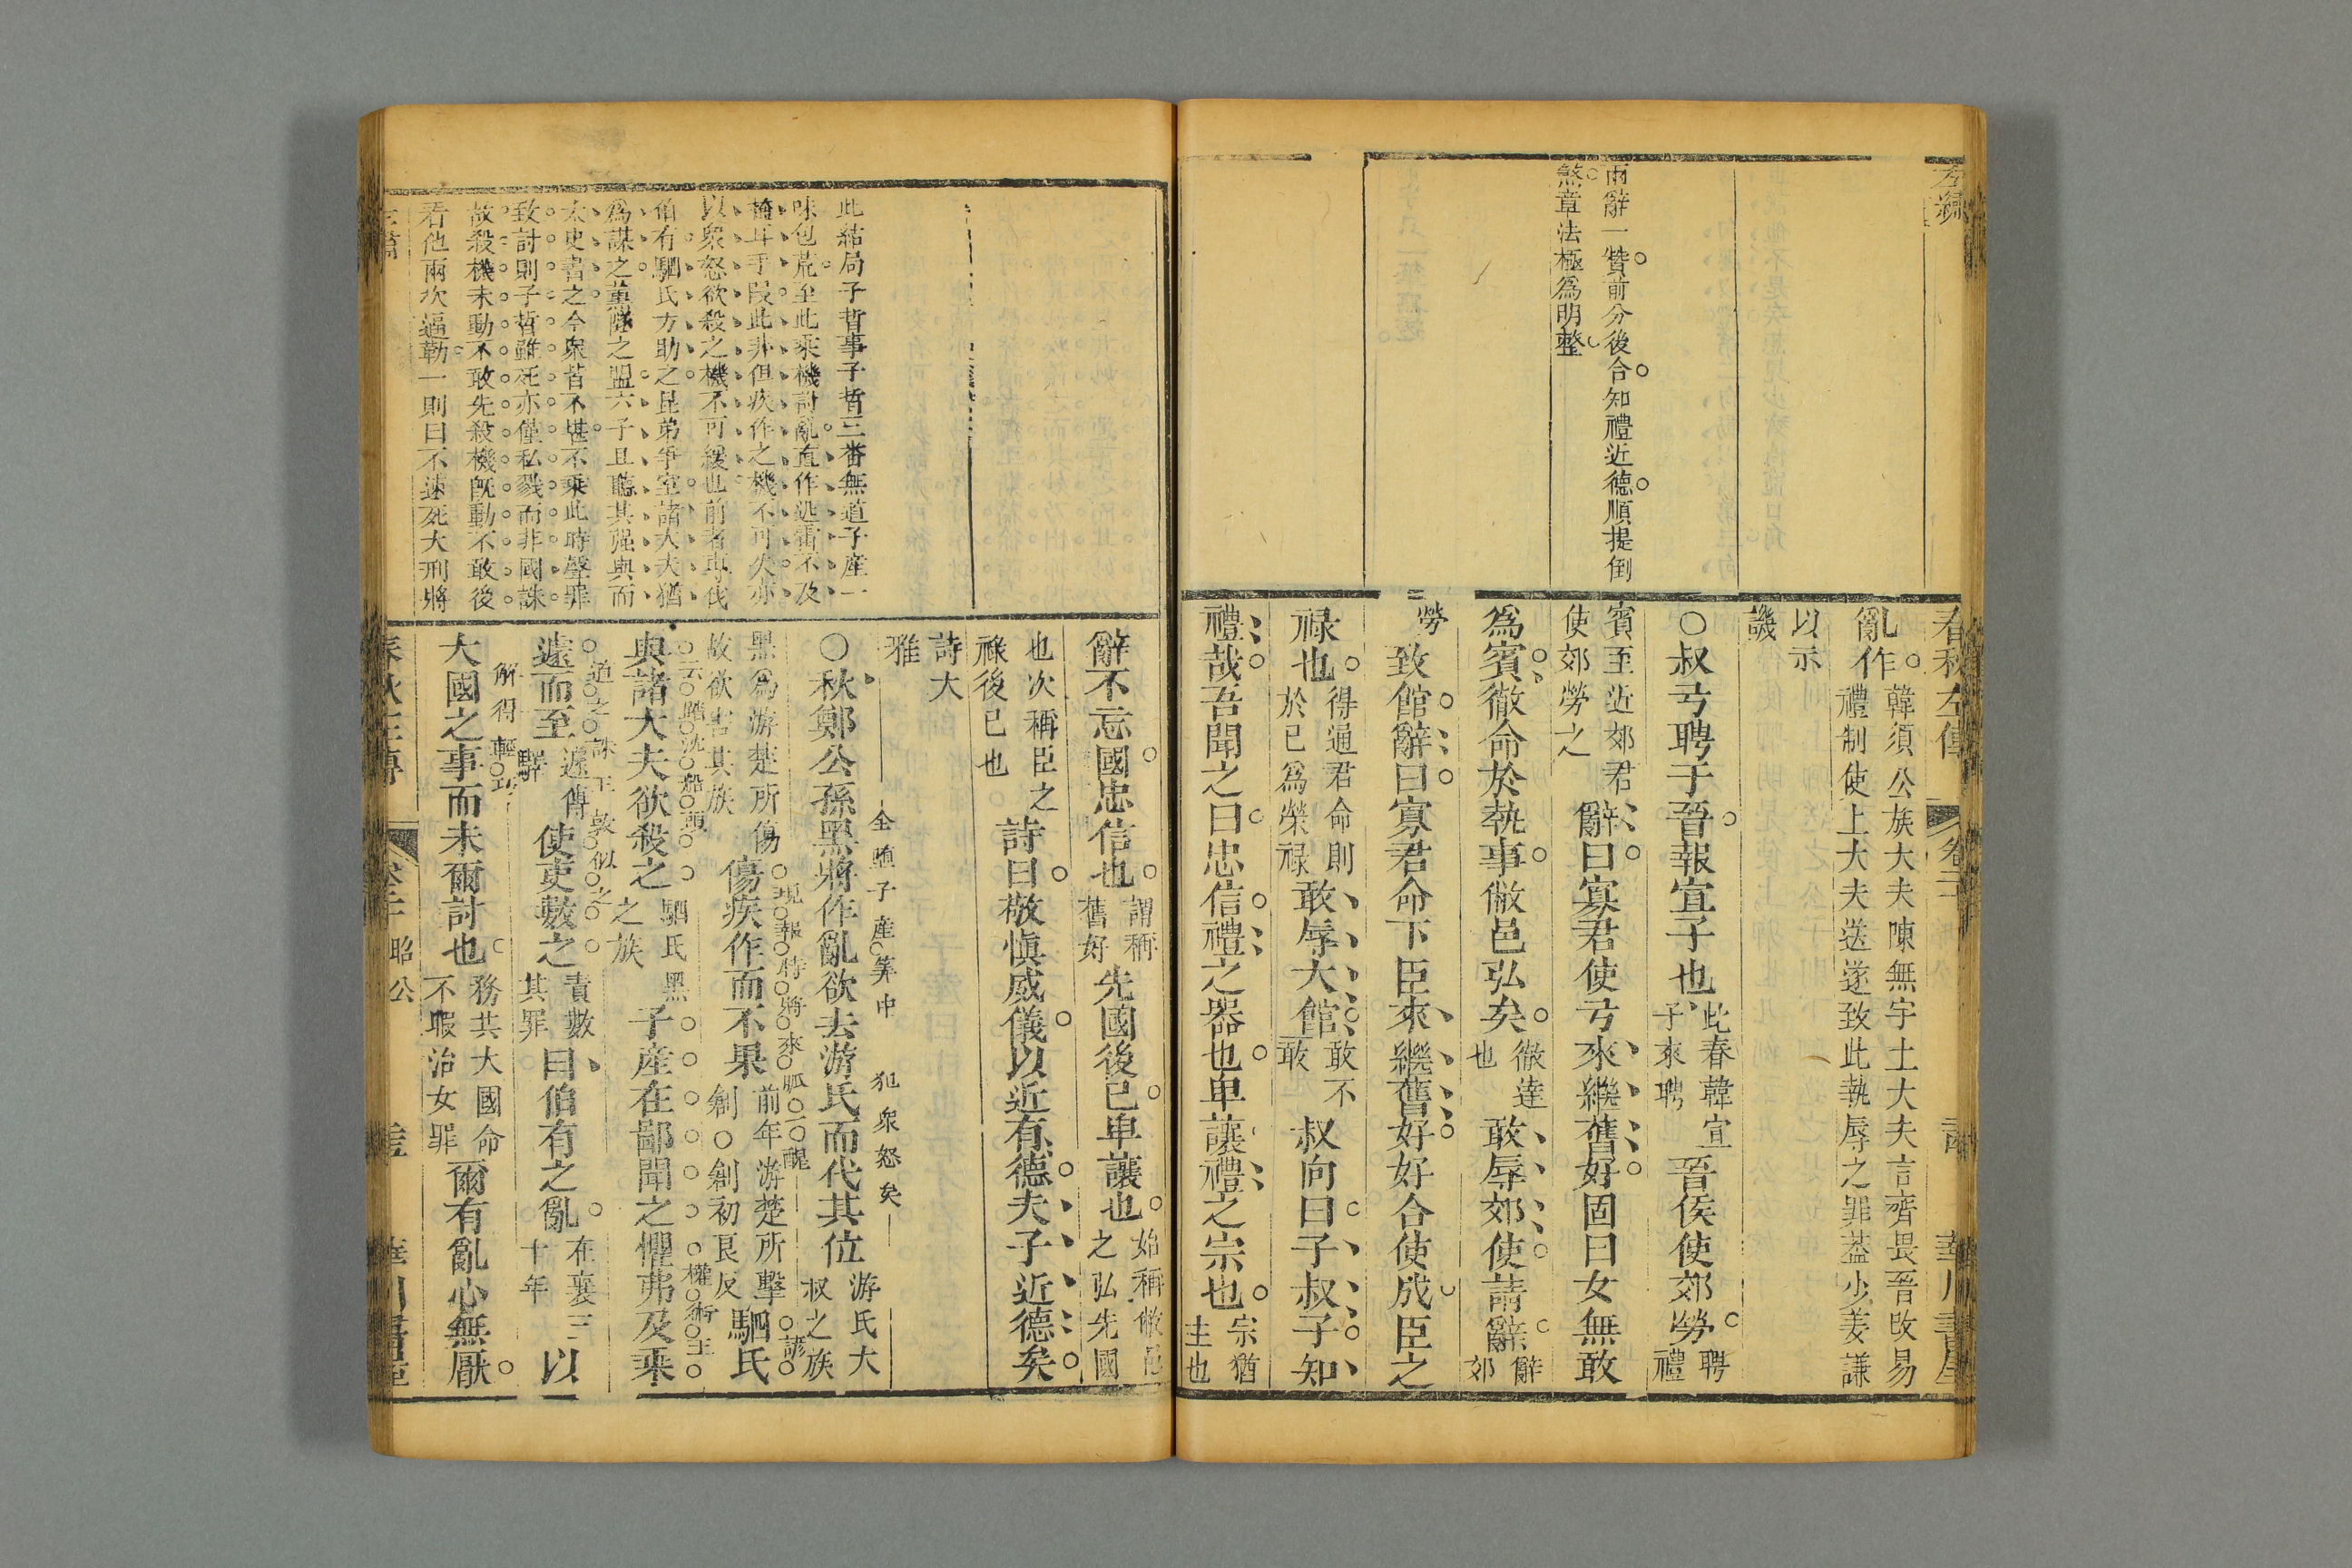 春秋左傳
兩辭一贊前分後合知禮近德順提倒
煞章法極為明整
亂作韓須公族大夫陳無宇上大夫言齊畏晉改易
禮制使上大夫送遂致此執辱之罪葢少姜謙
以示
譏
○叔弓聘于晉報宣子也此春韓宣
子來聘晉侯使郊勞聘
禮
賓至近郊君
使郊勞之辭曰寡君使弓來繼舊好固曰女無敢
為賓徹命於執事敝邑弘矣徹達
也敢辱郊使請辭辭
郊
勞
致館辭曰寡君命下臣來繼舊好好合使成臣之
祿也得通君命則
於己為榮祿敢辱大館敢不
敢叔向曰子叔子知
禮哉吾聞之曰忠信禮之器也卑讓禮之宗也宗猶
主也
此結局子晳事子晳三番無道子産一
味包荒至此乘機討亂直作迅雷不及
掩耳手段此非但疾作之機不可失亦
以衆怒欲殺之機不可緩也前者專伐
伯有駟氏方助之昆弟爭室諸大夫猶
為謀之薰隧之盟六子且聽其强與而
太史書之今衆皆不堪不乘此時聲罪
致討則子晳雖死亦僅私戮而非國誅
故殺機未動不敢先殺機旣動不敢後
看他兩次逼勒一則曰不速死大刑將
辭不忘國忠信也謂稱
舊好先國後己卑讓也始稱敝邑
之弘先國
也次稱臣之
祿後己也詩曰敬愼威儀以近有德夫子近德矣
詩大
雅
全隨子産筭中 犯衆怒矣
○秋鄭公孫黑將作亂欲去游氏而代其位游氏大
叔之族
黑為游楚所傷
故欲害其族傷疾作而不果前年游楚所擊
創○創初良反駟氏
與諸大夫欲殺之駟氏黑
之族子産在鄙聞之懼弗及乘
遽而至遽傳
驛使吏數之責數
其罪曰伯有之亂在襄三
十年以
解得輕巧
大國之事而未爾討也務共大國命
不暇治女罪爾有亂心無厭
昭公